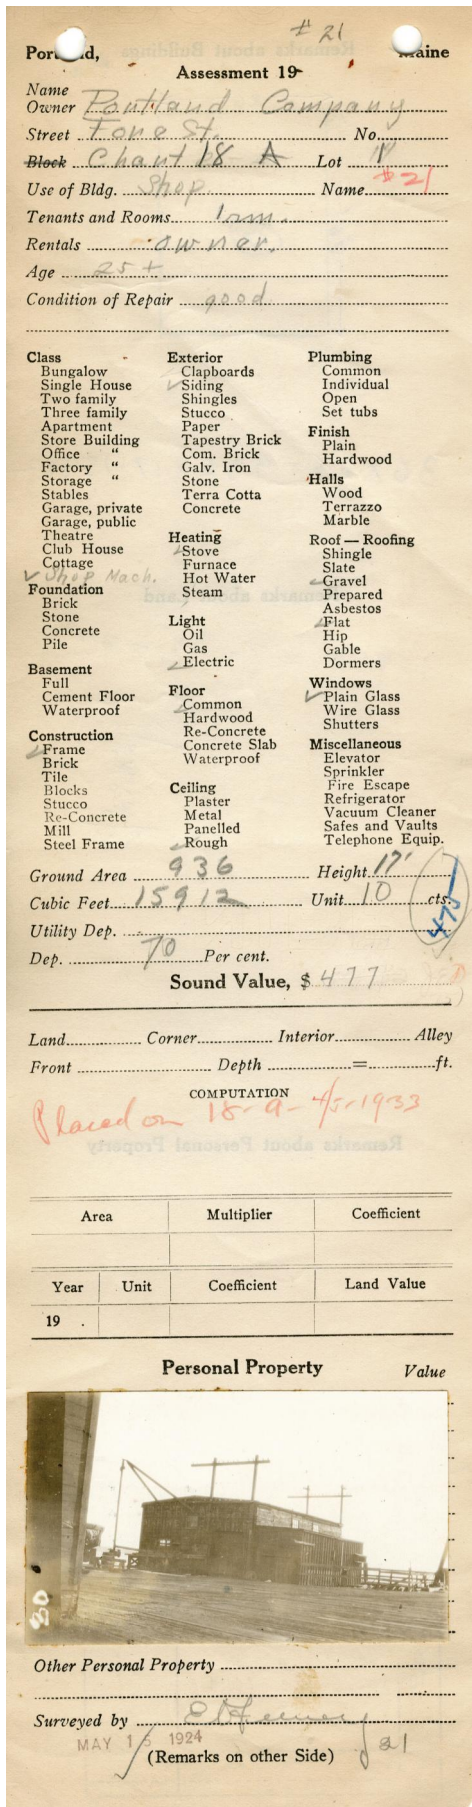 # 21
Portland, Maine
Assessment 19
Name
Owner Portland Company
Street Fore St. No.
Block Chart 18 A Lot 1
Use of Bldg. Shop Name #21
Tenants and Rooms 1 rm.
Rentals owner.
Age 25 +
Condition of Repair good
Class
Bungalow
Single House
Two family
Three family
Apartment
Store Building
Office "
Factory "
Storage "
Stables
Garage, private
Garage, public
Theatre
Club House
Cottage
✓ Shop Mach.
Foundation
Brick
Stone
Concrete
Pile
Basement
Full
Cement Floor
Waterproof
Construction
✓ Frame
Brick
Tile
Blocks
Stucco
Re-Concrete
Mill
Steel Frame
Exterior
Clapboards
✓ Siding
Shingles
Stucco
Paper
Tapestry Brick
Com. Brick
Galv. Iron
Stone
Terra Cotta
Concrete
Heating
✓ Stove
Furnace
Hot Water
Steam
Light
Oil
Gas
✓ Electric
Floor
✓ Common
Hardwood
Re-Concrete
Concrete Slab
Waterproof
Ceiling
Plaster
Metal
Panelled
✓ Rough
Plumbing
Common
Individual
Open
Set tubs
Finish
Plain
Hardwood
Halls
Wood
Terrazzo
Marble
Roof — Roofing
Shingle
Slate
✓ Gravel
Prepared
Asbestos
✓ Flat
Hip
Gable
Dormers
Windows
✓ Plain Glass
Wire Glass
Shutters
Miscellaneous
Elevator
Sprinkler
Fire Escape
Refrigerator
Vacuum Cleaner
Safes and Vaults
Telephone Equip.
Ground Area 936 Height 17'
Cubic Feet 15912 Unit 10 cts.
475
Utility Dep.
Dep. 70 Per cent.
Sound Value, $ 477
Land Corner Interior Alley
Front Depth = ft.
COMPUTATION
Placed on 18-A- 4/5-1933
Area Multiplier Coefficient
Year Unit Coefficient Land Value
19 .
Personal Property Value
30
Other Personal Property
Surveyed by
MAY 15 1924
(Remarks on other Side) 21